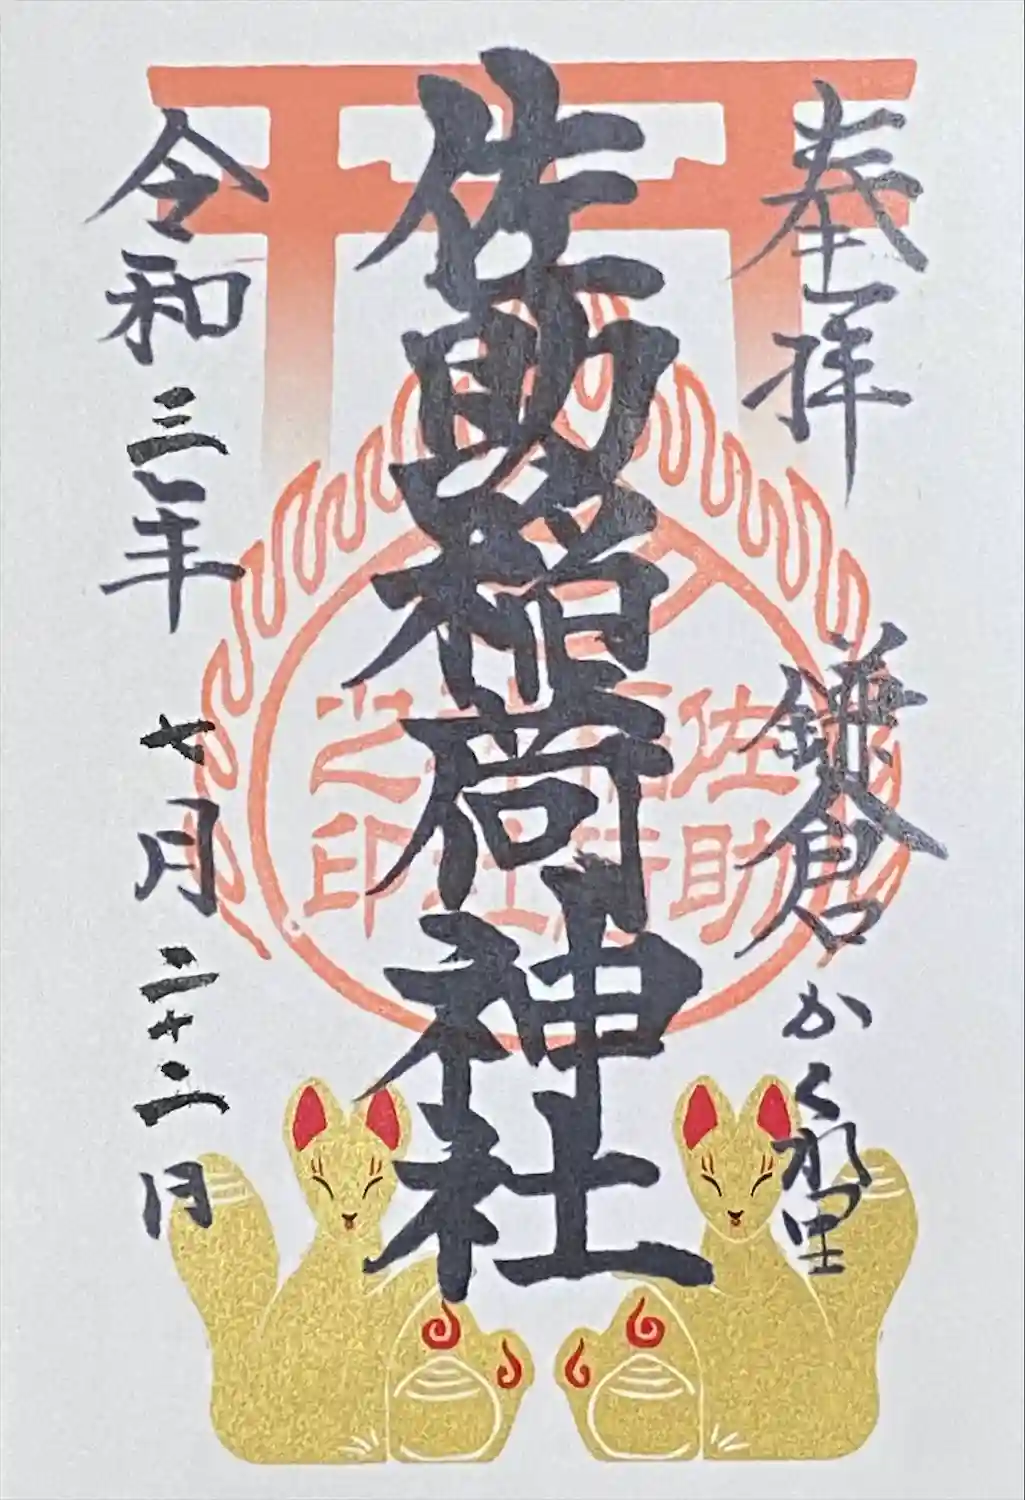 奉拝 鎌倉かくれ里
佐助稲荷神社
令和三年七月二十二日
佐助
稲荷
神社
之印